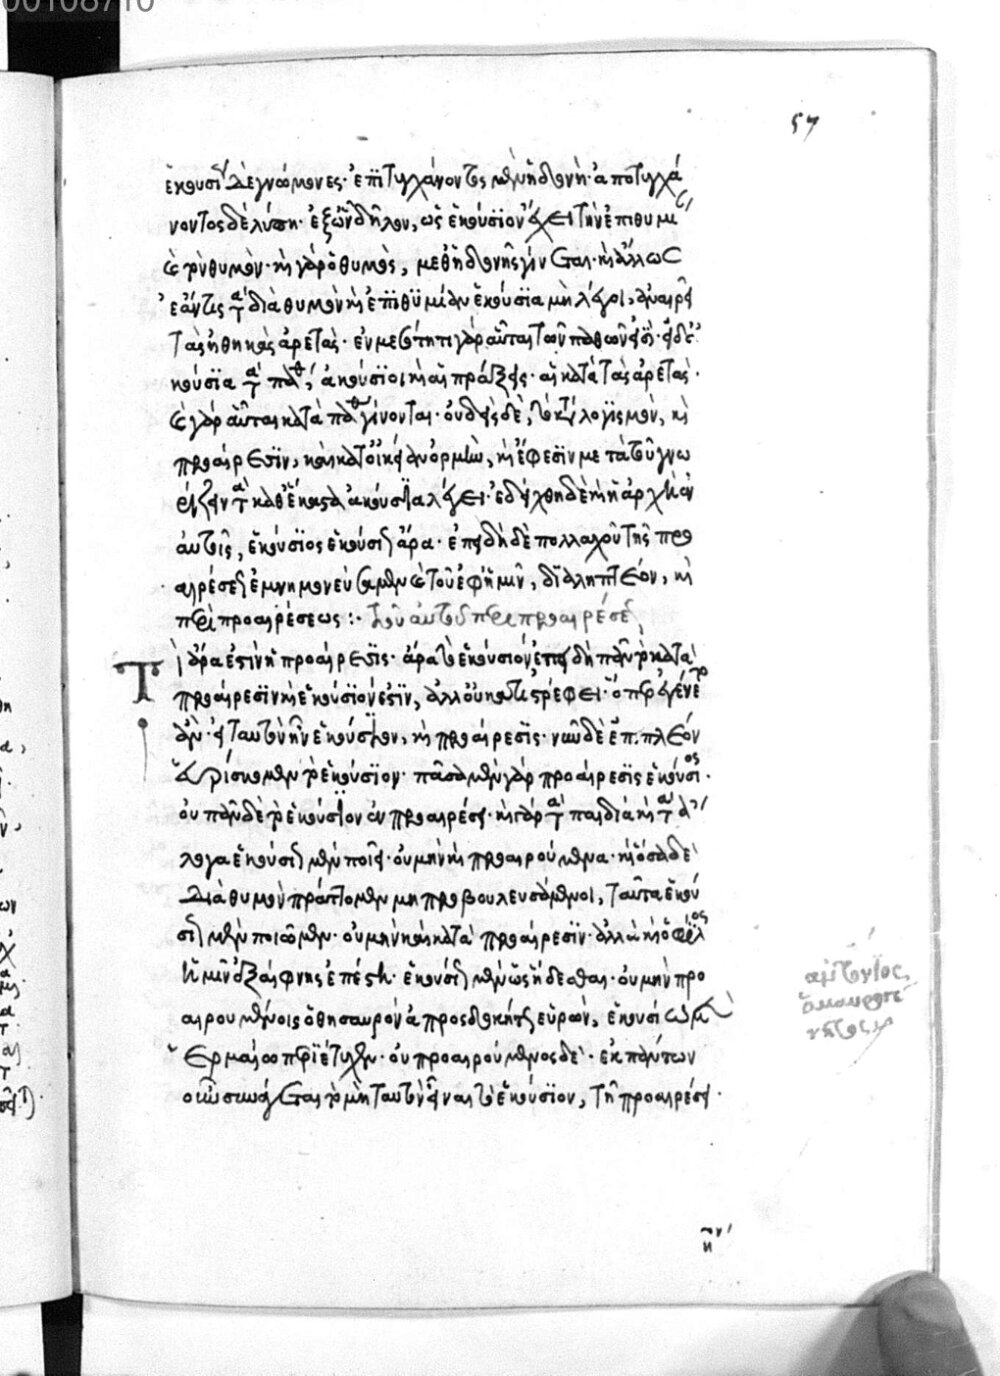 00108710
57
ἑκουσίου δὲ γνώμονες· ἐπιτυγχάνοντος μὲν ἡδονὴ· ἀποτυγχά
νοντος δὲ λύπη· ἐξ ὧν δῆλον, ὡς ἑκούσιον ἄγει τὴν ἐπιθυμί
καὶ τὸν θυμόν· καὶ γὰρ ὁ θυμὸς, μεθ ἡδονῆς γίνεται· καὶ ἄλλως
ἐάν τις τὰ διὰ θυμὸν καὶ ἐπιθυμίαν ἑκούσια μὴ λέγοι, ἀναιρεῖ
τὰς ἠθηκὰς ἀρετὰς· ἐν μεσότητι γὰρ αὗται τῶν παθῶν εἰσὶ· εἰ δὲ ἀ
κούσια τὰ πάθη, ἀκούσιοι καὶ αἱ πράξεις· αἱ κατὰ τὰς ἀρετὰς·
καὶ γὰρ αὗται κατὰ πάθος γίνονται· οὐδεὶς δὲ, τὸ κατὰ λογισμὸν, καὶ
προαίρεσιν, καὶ κατ οἰκείαν ὁρμὴν, καὶ ἔφεσιν μετὰ τοῦ γνω
ρίζειν τὰ καθ ἕκαστα ἀκούσια λέγει· ἐδείχθη δὲ καὶ ἡ ἀρχὴ ἐν
αὐτοῖς, ἑκούσιος ἑκούσια ἄρα· ἐπειδὴ δὲ πολλαχοῦ τῆς προ
αιρέσεως ἐμνημονεύσαμεν καὶ τοῦ ἐφ ἡμῖν, διαληπτέον, καὶ
περὶ προαιρέσεως :· τοῦ αὐτοῦ περὶ προαιρέσεως
Τί ἄρα ἐστὶν ἡ προαίρεσις· ἄρα τὸ ἑκούσιον ἐπειδὴ πᾶν τὸ κατὰ
προαίρεσιν καὶ ἑκούσιόν ἐστιν, ἀλλ οὐκ ἀντιστρέφει· ὅπερ ἐγένετο
ἂν· εἰ ταυτὸν ἦν ἑκούσιον, καὶ προαίρεσις· νῦν δὲ ἐπὶ πλέον
εὑρίσκομεν τὸ ἑκούσιον· πᾶσα μὲν γὰρ προαίρεσις ἑκούσιος·
οὐ πᾶν δὲ τὸ ἑκούσιον ἐν προαιρέσει· καὶ γὰρ τὰ παιδία καὶ τὰ ἄ
λογα ἑκουσίως μὲν ποιεῖ· οὐ μὴν καὶ προαιρούμενα· καὶ ὅσα δὲ
διὰ θυμὸν πράττομεν μὴ προβουλευσάμενοι, ταῦτα ἑκου
σίως μὲν ποιοῦμεν· οὐ μὴν καὶ κατὰ προαίρεσιν· ἀλλὰ καὶ ὁ φίλος
ἡμῖν ἐξαίφνης ἐπέστη· ἑκουσίως μὲν ὡς ἥδεσθαι· οὐ μὴν προ
αιρουμένοις ὁ θησαυρὸν ἀπροσδοκήτως εὑρὼν, ἑκουσίως μὲν
Ἑρμαίῳ περιέτυχεν· οὐ προαιρούμενος δὲ· ἐκ πάντων
οὖν συνάγεται τὸ μὴ ταυτὸν εἶναι τὸ ἑκούσιον, τῇ προαιρέσει·